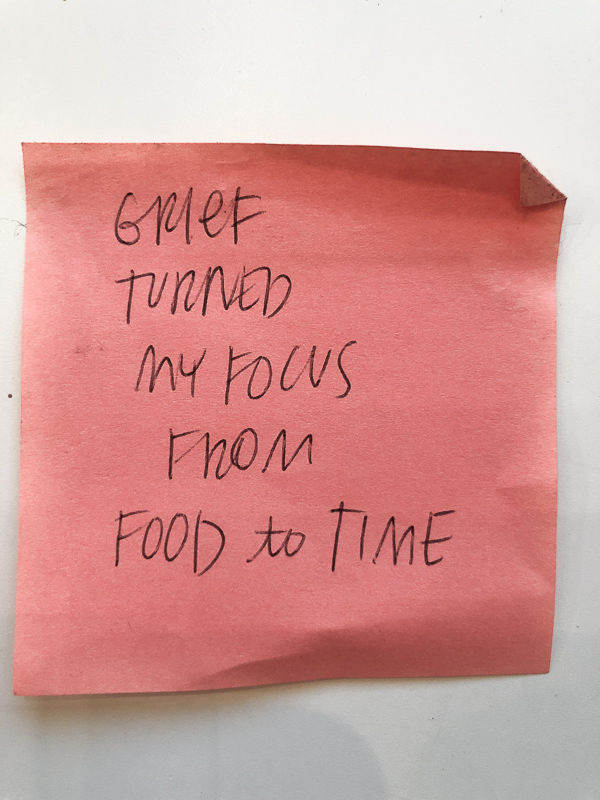 GRIeF
TURNED
MY FOCUS
FROM
FOOD to TIME